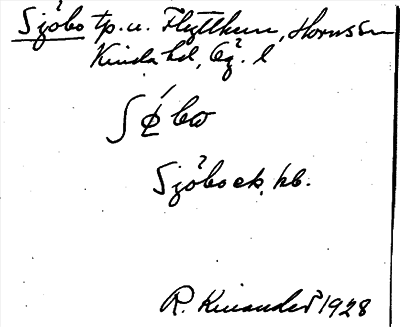 Sjöbo tp. u. Flyttkun, Horns sn
Kinda hd, Ög. l
Sjöbo ek. kb.
R. Kinander 1928